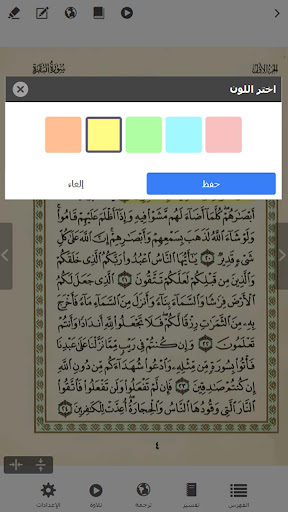 سُورَةُ البَقَرَةِ
الجزء الأوّل
اختر اللون
حفظ
إلغاء
أَبْصَٰرَهُمْ كُلَّمَآ أَضَآءَ لَهُم مَّشَوْا۟ فِيهِ وَإِذَآ أَظْلَمَ عَلَيْهِمْ قَامُوا۟
وَلَوْ شَآءَ ٱللَّهُ لَذَهَبَ بِسَمْعِهِمْ وَأَبْصَٰرِهِمْ إِنَّ ٱللَّهَ عَلَىٰ كُلِّ
شَىْءٍ قَدِيرٌ ٢٠ يَٰٓأَيُّهَا ٱلنَّاسُ ٱعْبُدُوا۟ رَبَّكُمُ ٱلَّذِى خَلَقَكُمْ
وَٱلَّذِينَ مِن قَبْلِكُمْ لَعَلَّكُمْ تَتَّقُونَ ٢١ ٱلَّذِى جَعَلَ لَكُمُ
ٱلْأَرْضَ فِرَٰشًا وَٱلسَّمَآءَ بِنَآءً وَأَنزَلَ مِنَ ٱلسَّمَآءِ مَآءً فَأَخْرَجَ بِهِۦ
مِنَ ٱلثَّمَرَٰتِ رِزْقًا لَّكُمْ فَلَا تَجْعَلُوا۟ لِلَّهِ أَندَادًا وَأَنتُمْ
تَعْلَمُونَ ٢٢ وَإِن كُنتُمْ فِى رَيْبٍ مِّمَّا نَزَّلْنَا عَلَىٰ عَبْدِنَا
فَأْتُوا۟ بِسُورَةٍ مِّن مِّثْلِهِۦ وَٱدْعُوا۟ شُهَدَآءَكُم مِّن دُونِ ٱللَّهِ
إِن كُنتُمْ صَٰدِقِينَ ٢٣ فَإِن لَّمْ تَفْعَلُوا۟ وَلَن تَفْعَلُوا۟ فَٱتَّقُوا۟
ٱلنَّارَ ٱلَّتِى وَقُودُهَا ٱلنَّاسُ وَٱلْحِجَارَةُ أُعِدَّتْ لِلْكَٰفِرِينَ ٢٤
٤
الفهرس
تفسير
ترجمة
تلاوة
الإعدادات